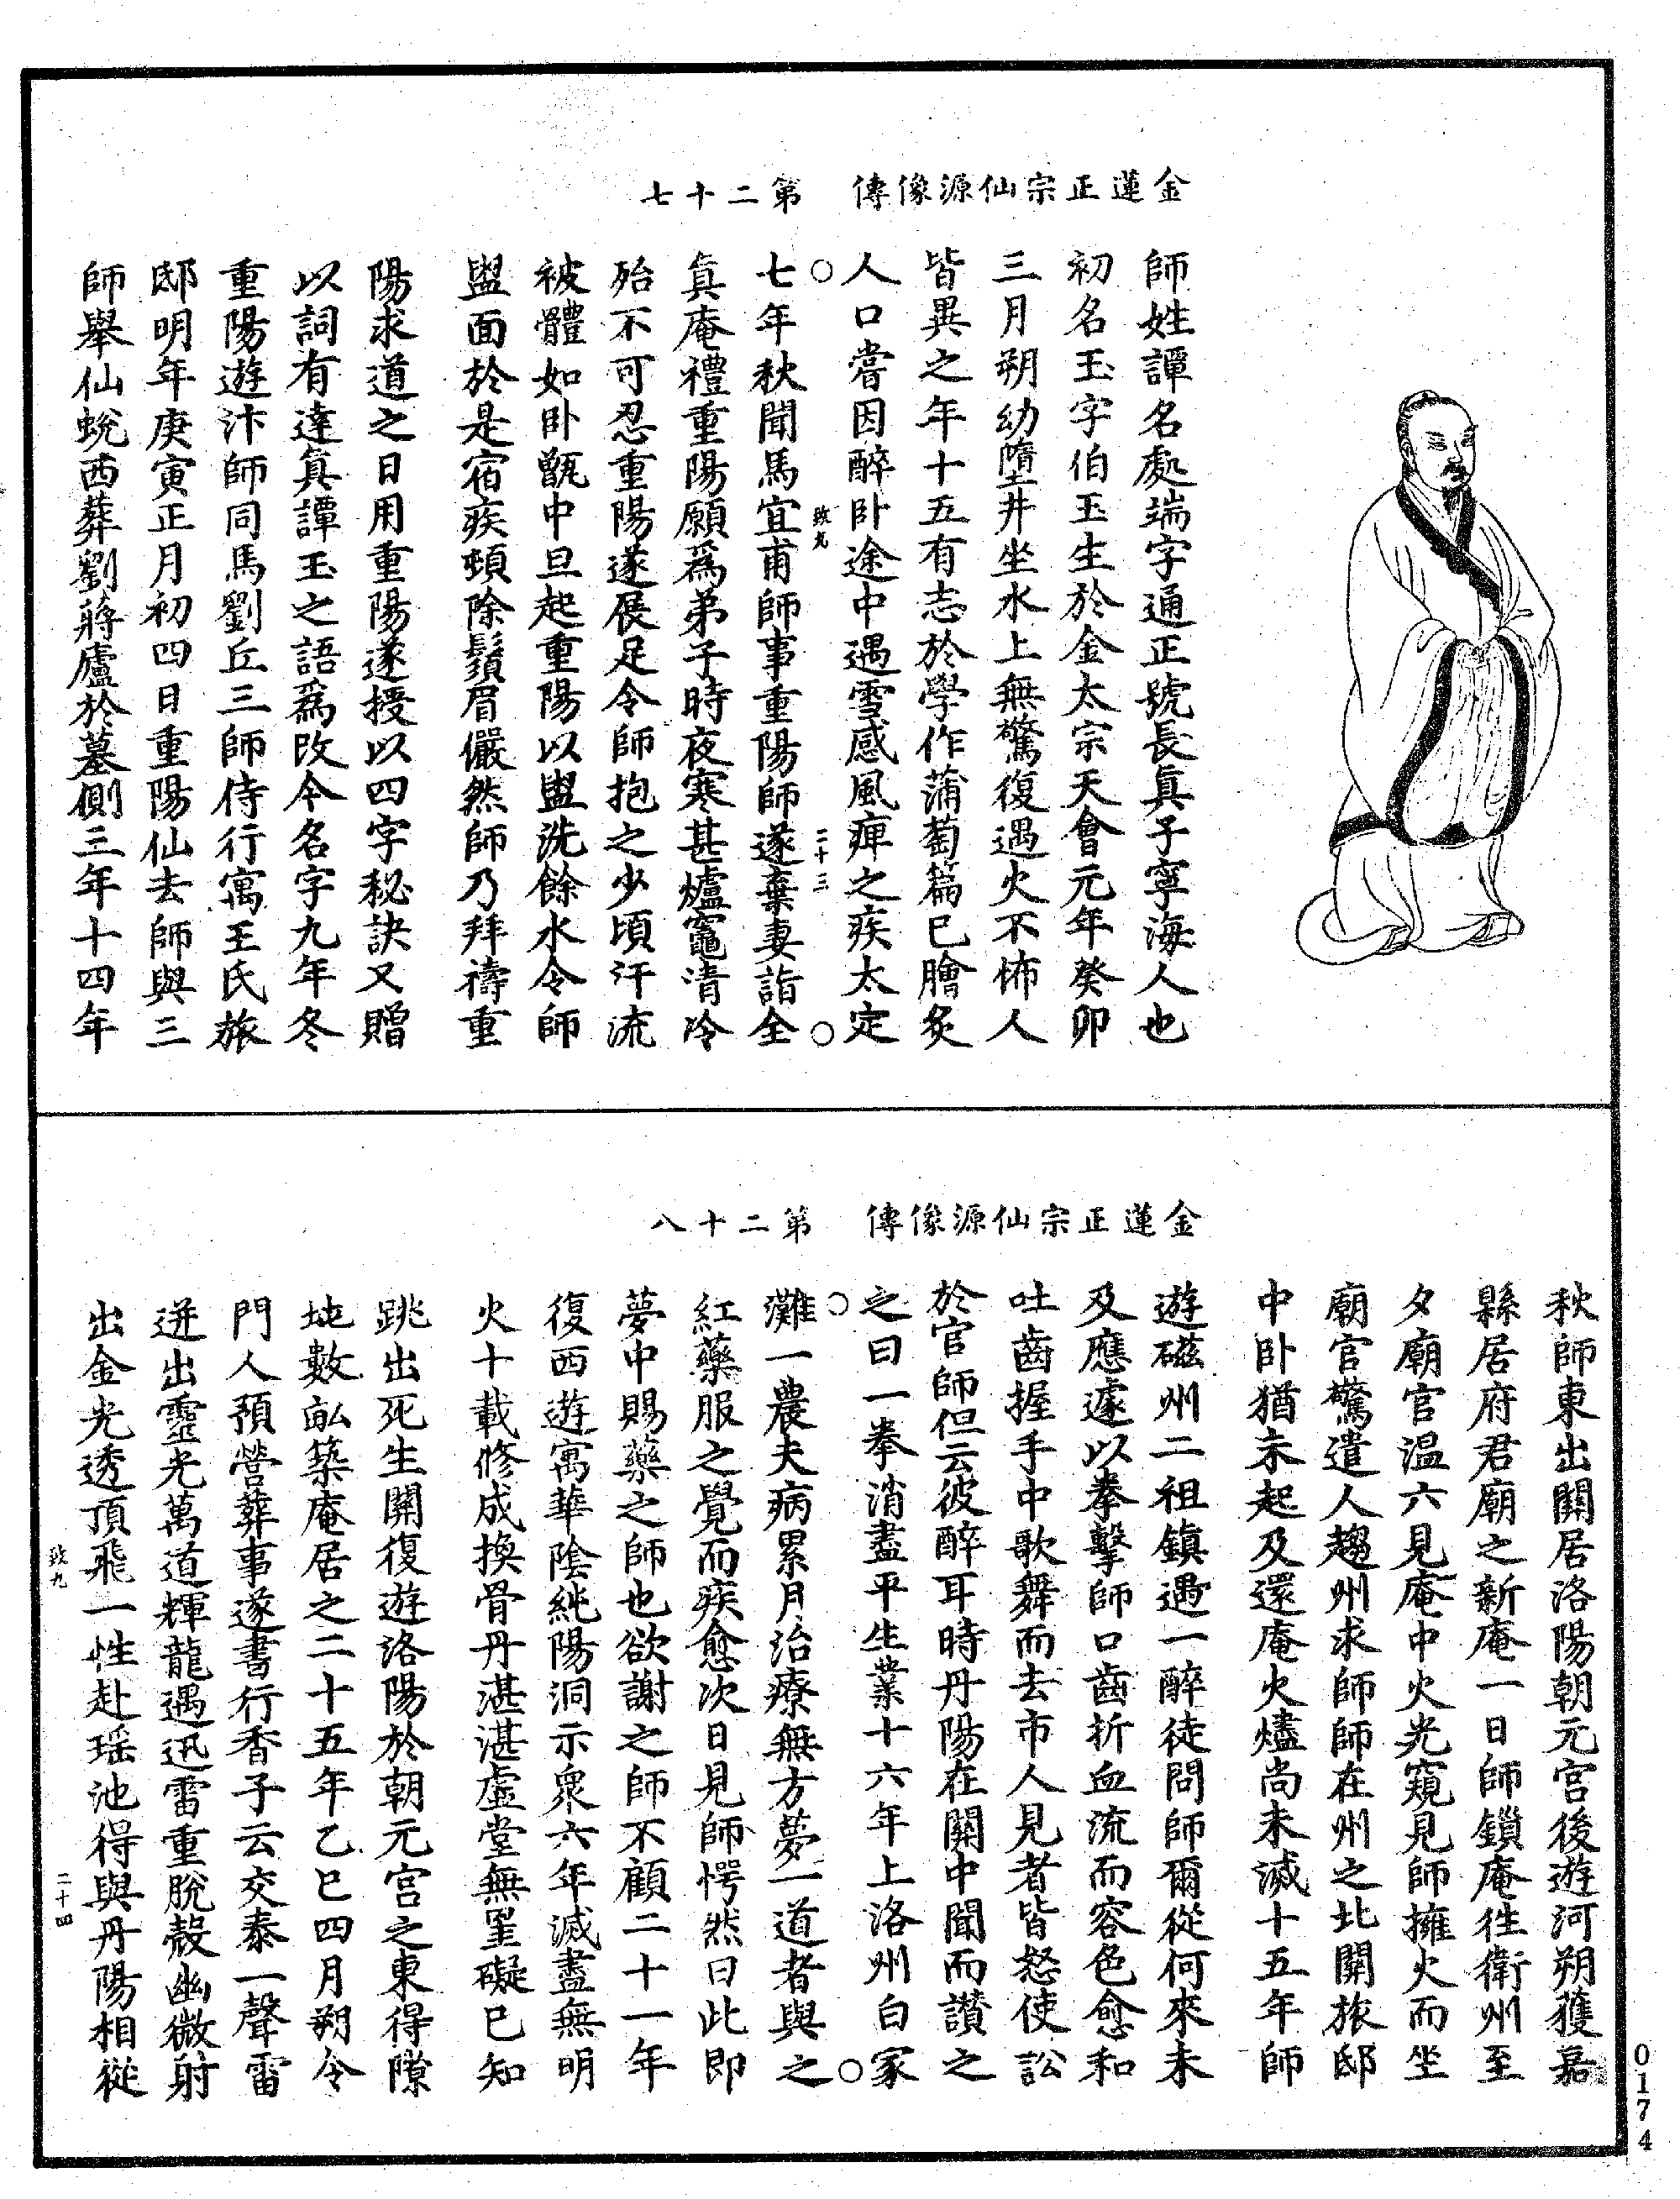 金蓮正宗仙源像傳　第二十七
師姓譚名處端字通正號長真子寧海人也
初名玉字伯玉生於金太宗天會元年癸卯
三月朔幼墮井坐水上無驚復遇火不怖人
皆異之年十五有志於學作蒲萄篇已膾炙
人口嘗因醉卧途中遇雪感風痺之疾太定
○　致九　二十三　○
七年秋聞馬宜甫師事重陽師遂棄妻詣全
真庵禮重陽願爲弟子時夜寒甚爐竈清冷
殆不可忍重陽遂展足令師抱之少頃汗流
被體如卧甑中旦起重陽以盥洗餘水令師
盥面於是宿疾頓除鬚眉儼然師乃拜禱重
陽求道之日用重陽遂授以四字秘訣又贈
以詞有達真譚玉之語爲改今名字九年冬
重陽遊汴師同馬劉丘三師侍行寓王氏旅
邸明年庚寅正月初四日重陽仙去師與三
師舉仙蛻西葬劉蔣廬於墓側三年十四年
金蓮正宗仙源像傳　第二十八
秋師東出關居洛陽朝元宮後遊河朔獲嘉
縣居府君廟之新庵一日師鎖庵往衛州至
夕廟官温六見庵中火光窺見師擁火而坐
廟官驚遣人趨州求師師在州之北關旅邸
中卧猶未起及還庵火燼尚未滅十五年師
遊磁州二祖鎮遇一醉徒問師爾從何來未
及應遽以拳擊師口齒折血流而容色愈和
吐齒握手中歌舞而去市人見者皆怒使訟
於官師但云彼醉耳時丹陽在關中聞而讃之
之曰一拳消盡平生業十六年上洛州白家
○　○
灘一農夫病累月治療無方夢一道者與之
紅藥服之覺而疾愈次日見師愕然曰此即
夢中賜藥之師也欲謝之師不顧二十一年
復西遊寓華陰純陽洞示衆六年滅盡無明
火十載修成換骨丹湛湛虛堂無罣礙已知
跳出死生關復遊洛陽於朝元宮之東得隙
地數畝築庵居之二十五年乙巳四月朔令
門人預營葬事遂書行香子云交泰一聲雷
迸出靈光萬道輝龍遇迅雷重脫殼幽微射
出金光透頂飛一性赴瑶池得與丹陽相從
致九　二十四
0174